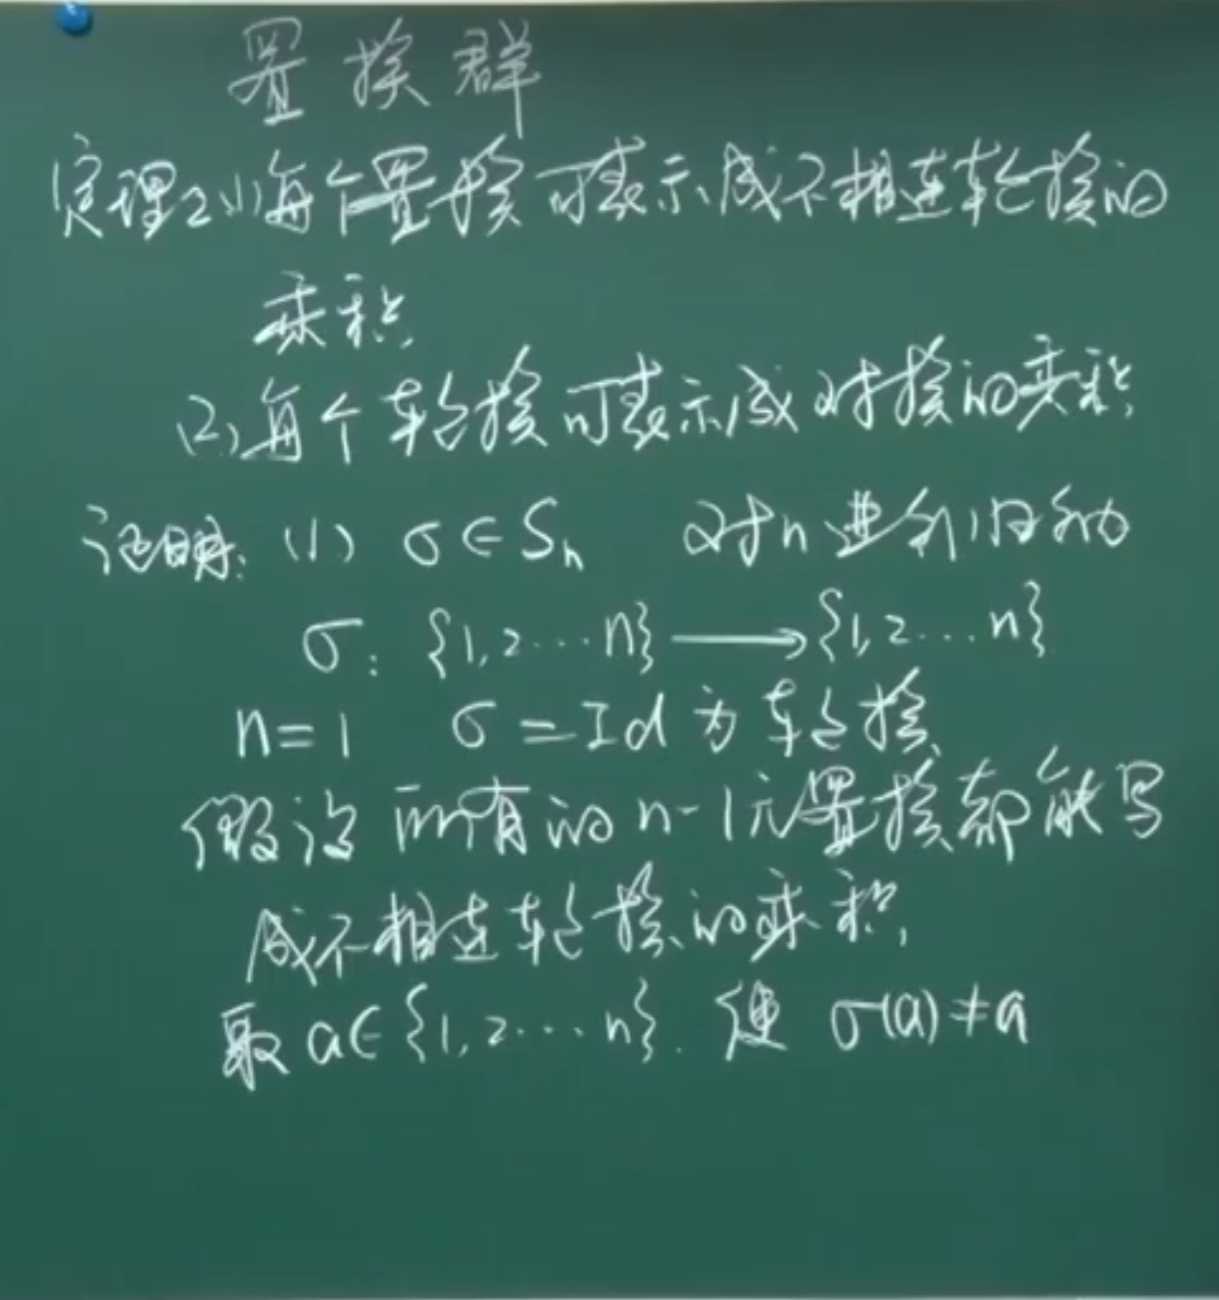 置换群
定理2(1)每个置换可表示成不相连轮换的
乘积
(2)每个轮换可表示成对换的乘积
证明:(1) σ∈Sn 对n进行归纳
σ: {1,2…n} ⟶ {1,2…n}
n=1 σ=Id 为轮换
假设 所有的 n-1元置换都能写
成不相连轮换的乘积,
取 a∈{1,2…n}. 使 σ(a)≠a